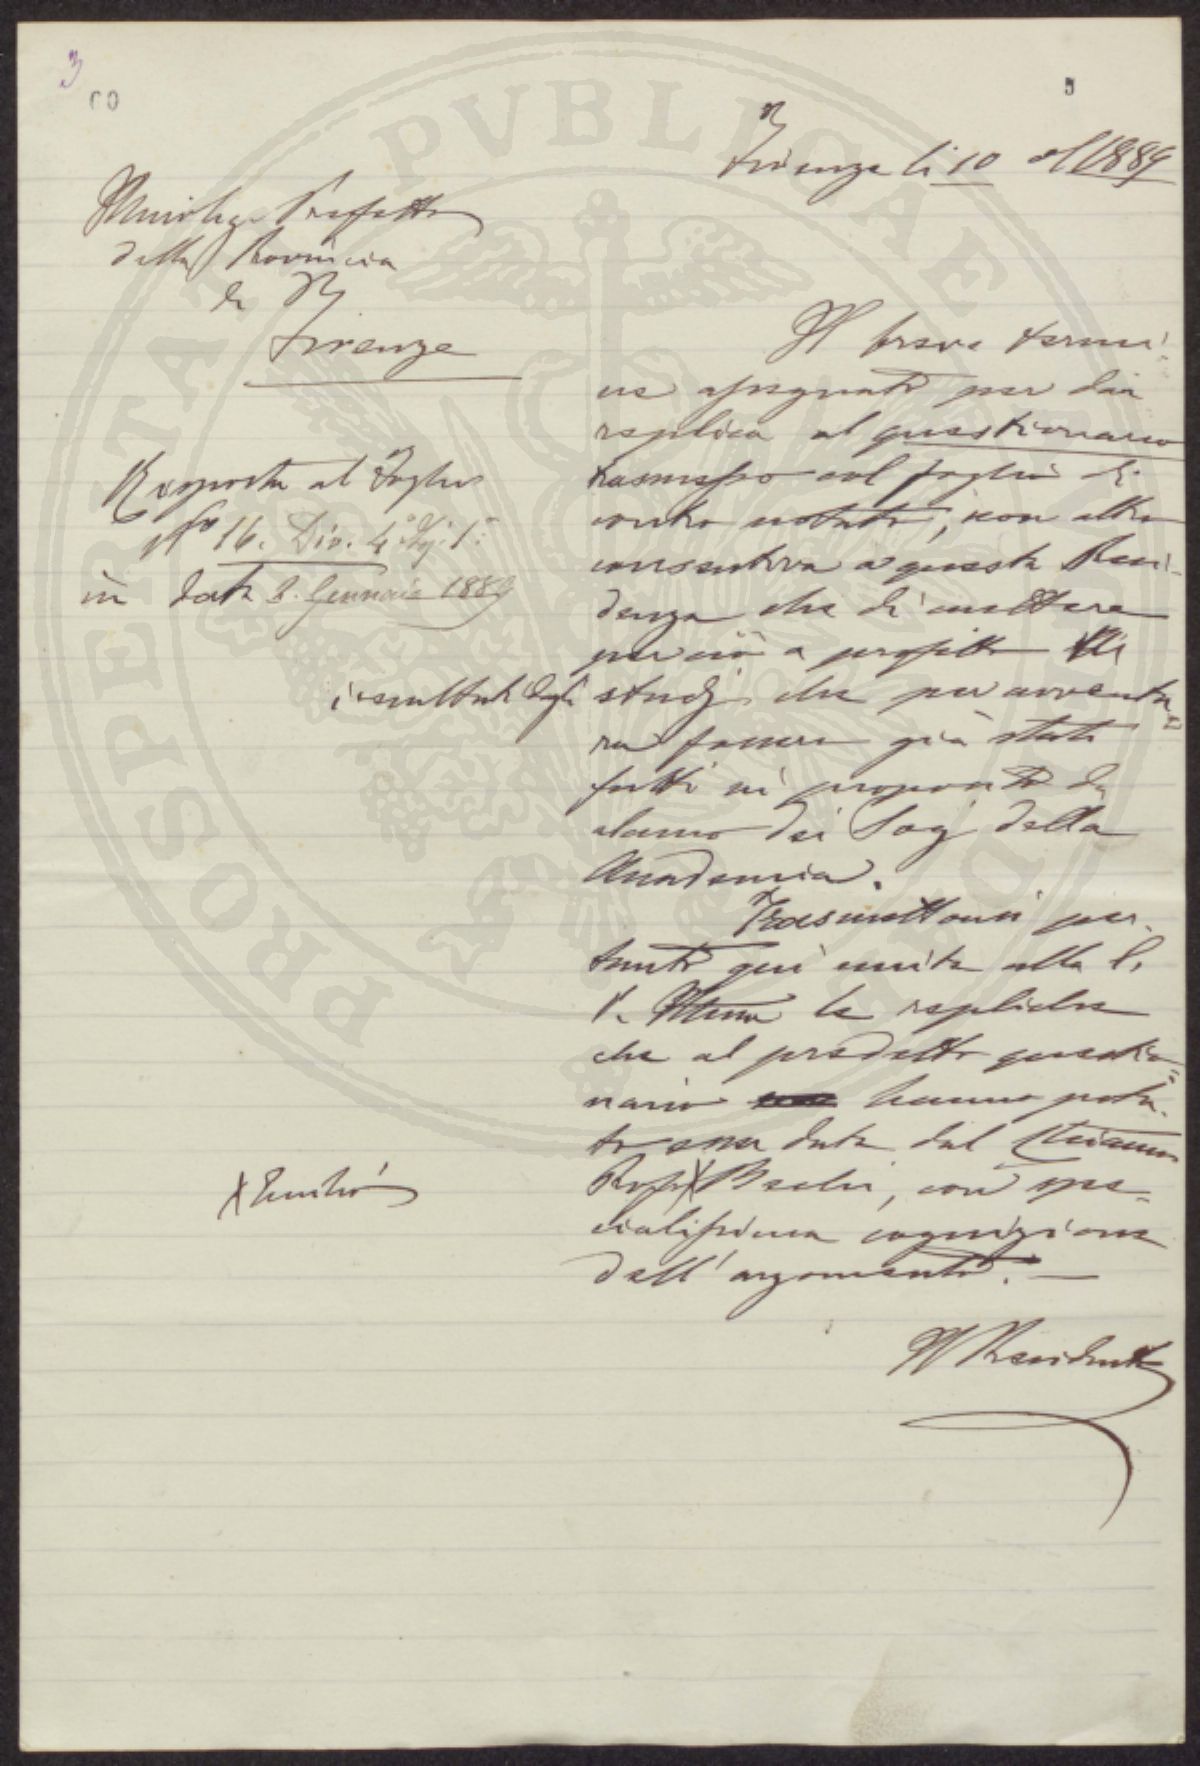 3
Firenze li 10 1889
Illmo Sige Prefetto
della Provincia
di
Firenze
Risposta al Foglio
No 16. Div. 4a 1a
in data 3. Gennaio 1889
Il breve termi-
ne assegnato per dar
replica al questionario
trasmesso col foglio di
contro notato, non altro
consentiva a questa Presi-
denza che di mettere
perciò a profitto
i resultati degli studj che per avventu-
ra fossero già stati
fatti in proposito da
alcuno dei Socj della
Accademia.
Trasmettonsi per-
tanto quì unite alla S.
V. Illma le repliche
che al predetto questio-
nario hanno potu-
to esser date dal Chiarmo
Prof. X Bechi, con spe-
cialissima cognizione
dell'argomento. —
X Emilio
Il Presidente
PROSPERITATI PVBLICAE